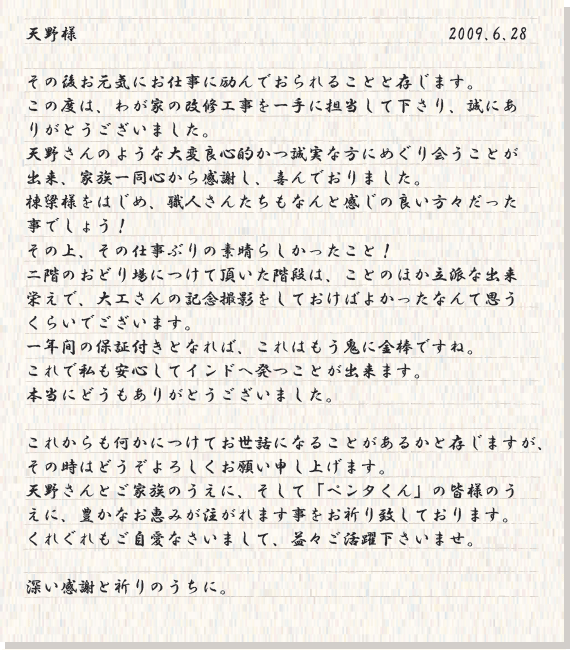 天野様 2009.6.28
その後お元気にお仕事に励んでおられることと存じます。
この度は、わが家の改修工事を一手に担当して下さり、誠にあ
りがとうございました。
天野さんのような大変良心的かつ誠実な方にめぐり会うことが
出来、家族一同心から感謝し、喜んでおりました。
棟梁様をはじめ、職人さんたちもなんと感じの良い方々だった
事でしょう！
その上、その仕事ぶりの素晴らしかったこと！
二階のおどり場につけて頂いた階段は、ことのほか立派な出来
栄えで、大工さんの記念撮影をしておけばよかったなんて思う
くらいでございます。
一年間の保証付きとなれば、これはもう鬼に金棒ですね。
これで私も安心してインドへ発つことが出来ます。
本当にどうもありがとうございました。
これからも何かにつけてお世話になることがあるかと存じますが、
その時はどうぞよろしくお願い申し上げます。
天野さんとご家族のうえに、そして「ペンタくん」の皆様のう
えに、豊かなお恵みが注がれます事をお祈り致しております。
くれぐれもご自愛なさいまして、益々ご活躍下さいませ。
深い感謝と祈りのうちに。